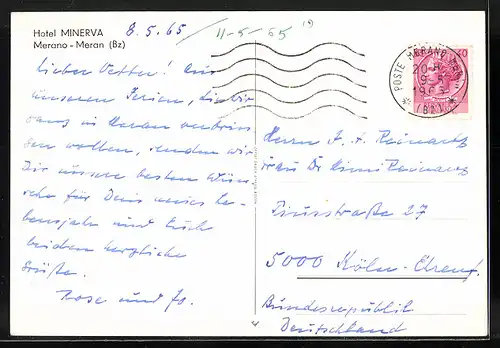 Hotel MINERVA
Merano - Meran (Bz)
8.5.65 / 11-5-65
Lieber Vetter! Aus
unseren Ferien, die wir
ganz in Meran verbrin-
gen wollen, senden wir
Dir unsere besten Wün-
sche für Dein neues Le-
bensjahr und Euch
beiden herzliche
Grüße.
Rose und Jo.
POSTE MERANO
(BZ)
Herrn J. F.
Frau Dr
27
5000 Köln-Ehrenf.
Bundesrepublik
Deutschland